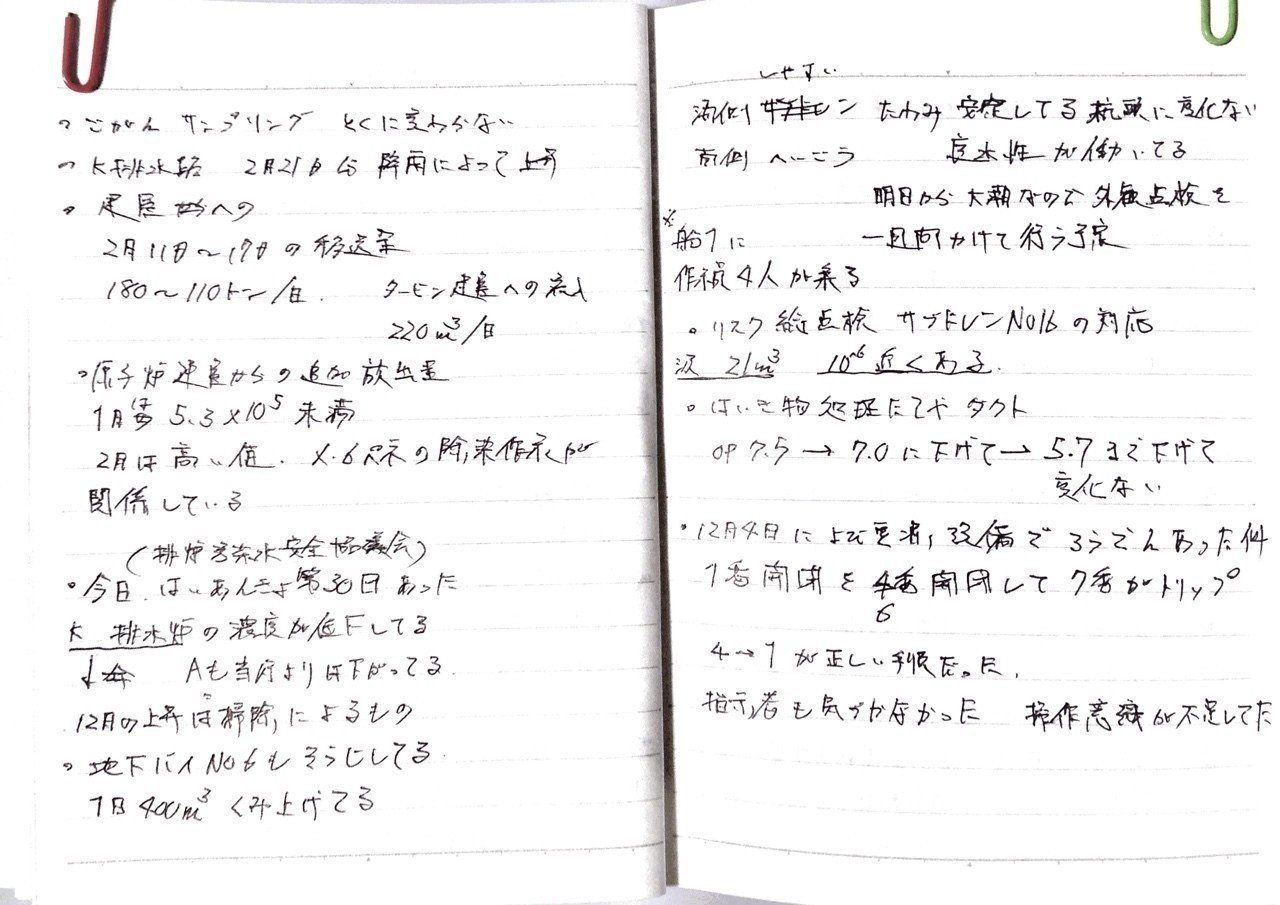 ・ごがん サンプリング とくに変わらない
・K排水路 2月21日から 降雨によって上昇
・建屋からへの
2月11日〜17日の移送量
180〜110トン/日. タービン建屋への流入
220m³/日
・原子炉建屋からの追加放出量
1月は 5.3×10⁵未満
2月は高い値. の除染作業が
関係している
(排炉 汚染水 安全 協議会)
・今日. はいあんきょ 第30日 あった
K 排水炉の濃度が低下してる
↓ Aも当庁よりは下がってる.
12月の上昇は掃除,によるもの
・地下バイNO6もそうじしてる
1日400m³くみ上げてる
しやすい
たわみ 安定してる 杭頭に変化ない
南側 へいこう 良水性が働いてる
明日から大潮なので外観点検を
船1に 一日かけて行う予定
作禎4人が来る
・リスク総点検 サブドレンNO16の対応
汲 21m³ 10⁻⁶近くある.
・はいき物処理にてや ダクト
OP 7.5→7.0に下げて→5.7まで下げて
変化ない
・12月4日に 設備でろうでんあった件
1番開閉を 番開閉して7番がトリップ
6
4→1が正しい手順だった.
指示者も気づかなかった 操作意識が不足してた